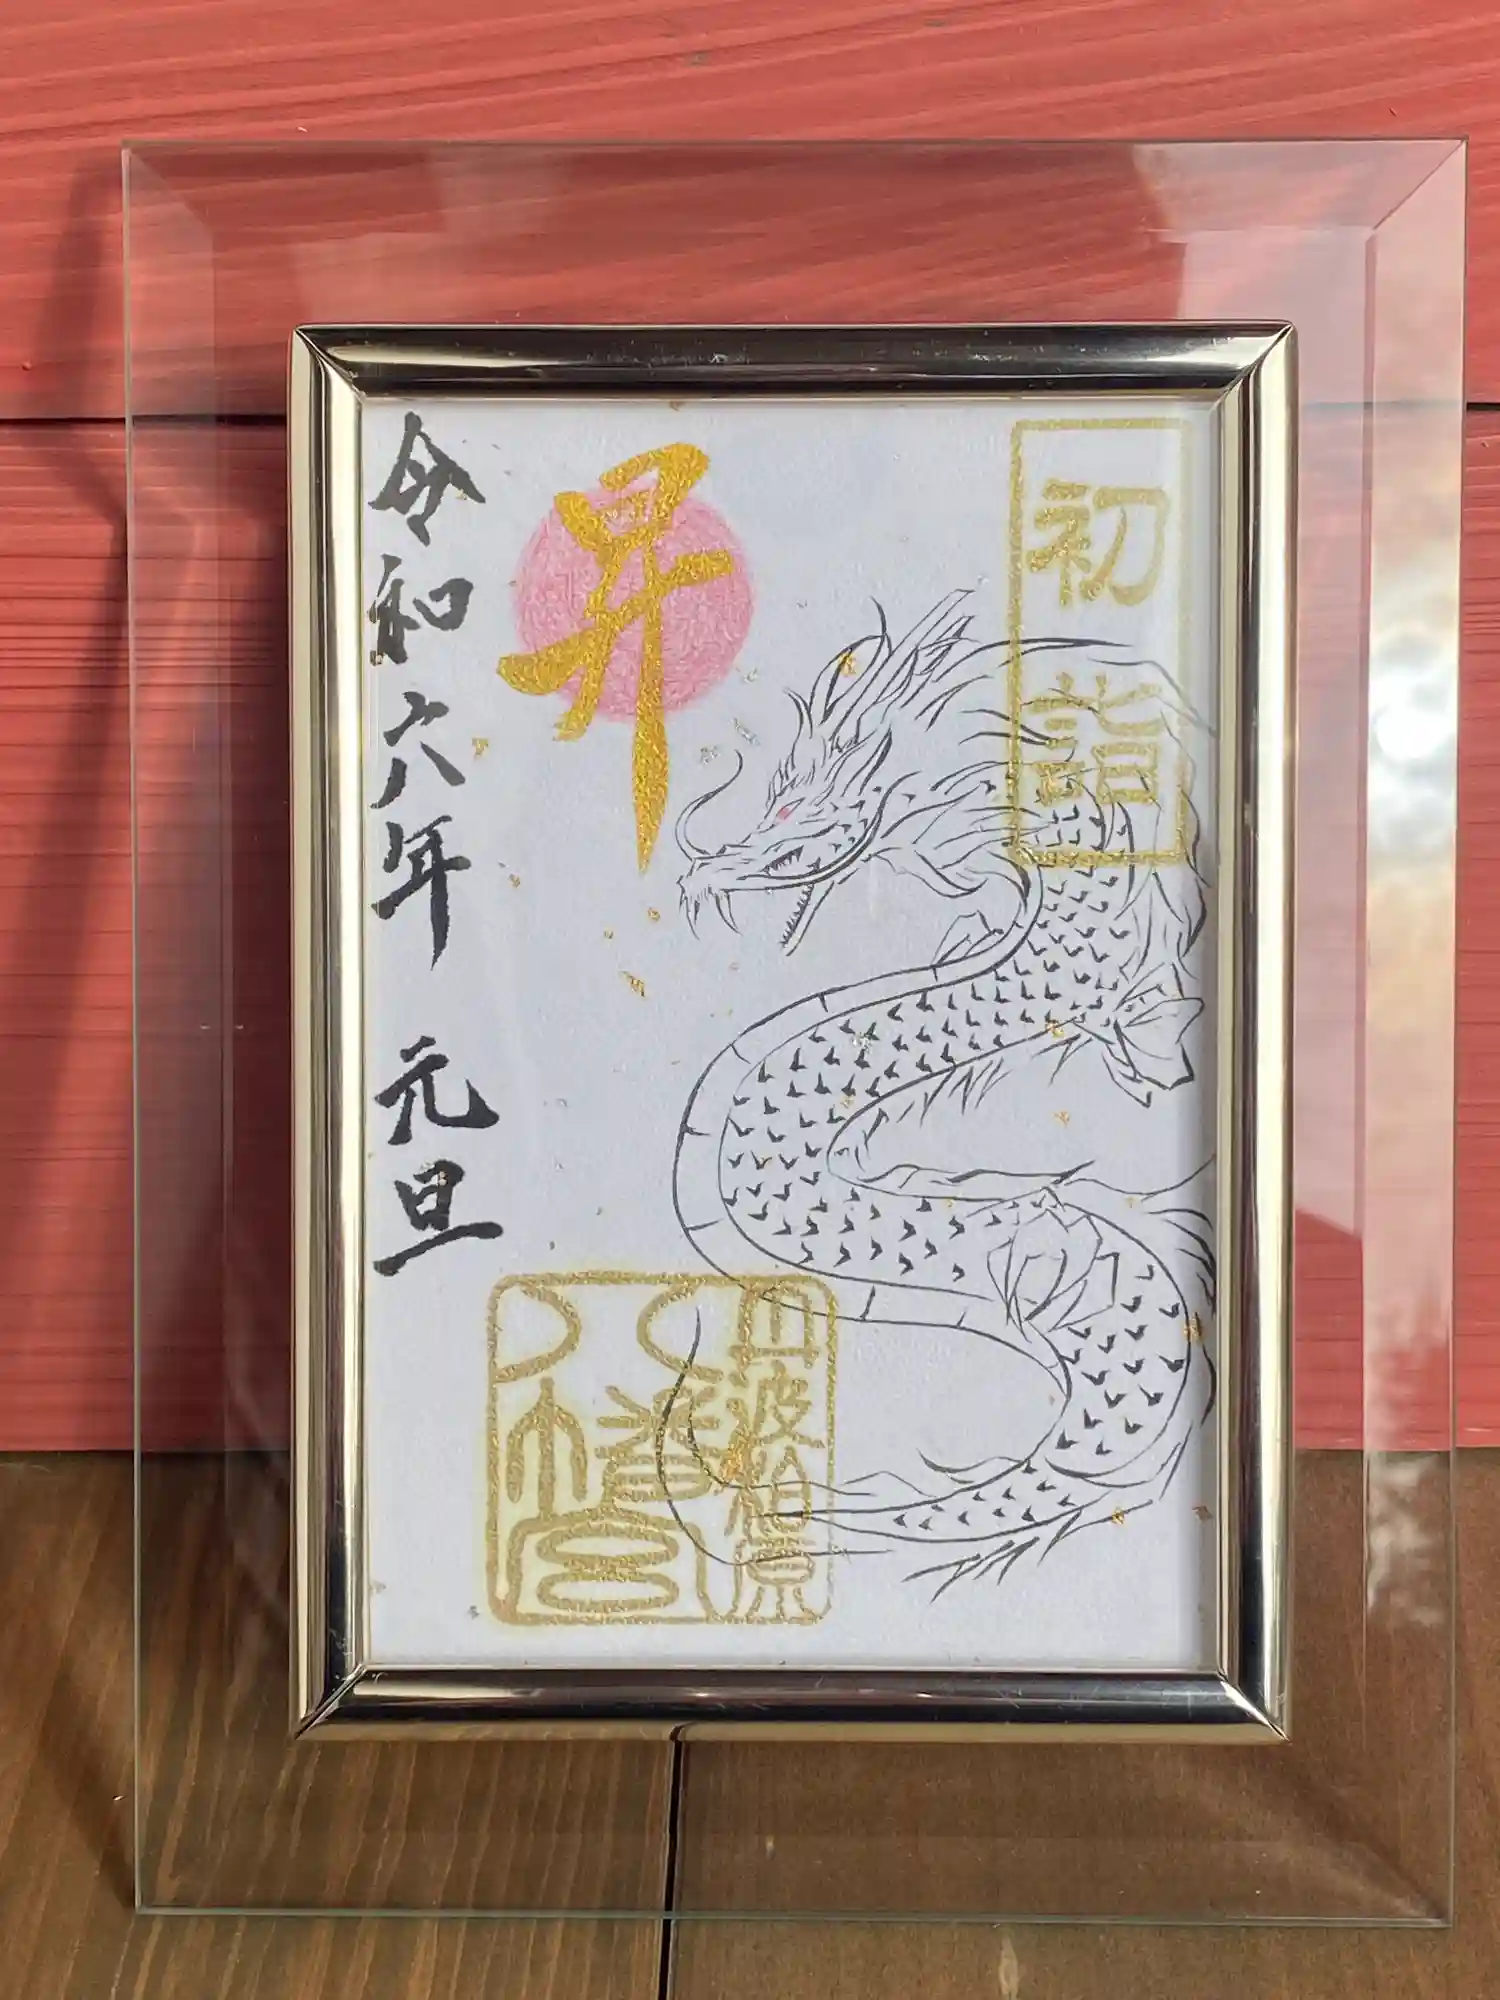 初詣
昇
令和六年 元旦
丹波柏原
八幡宮